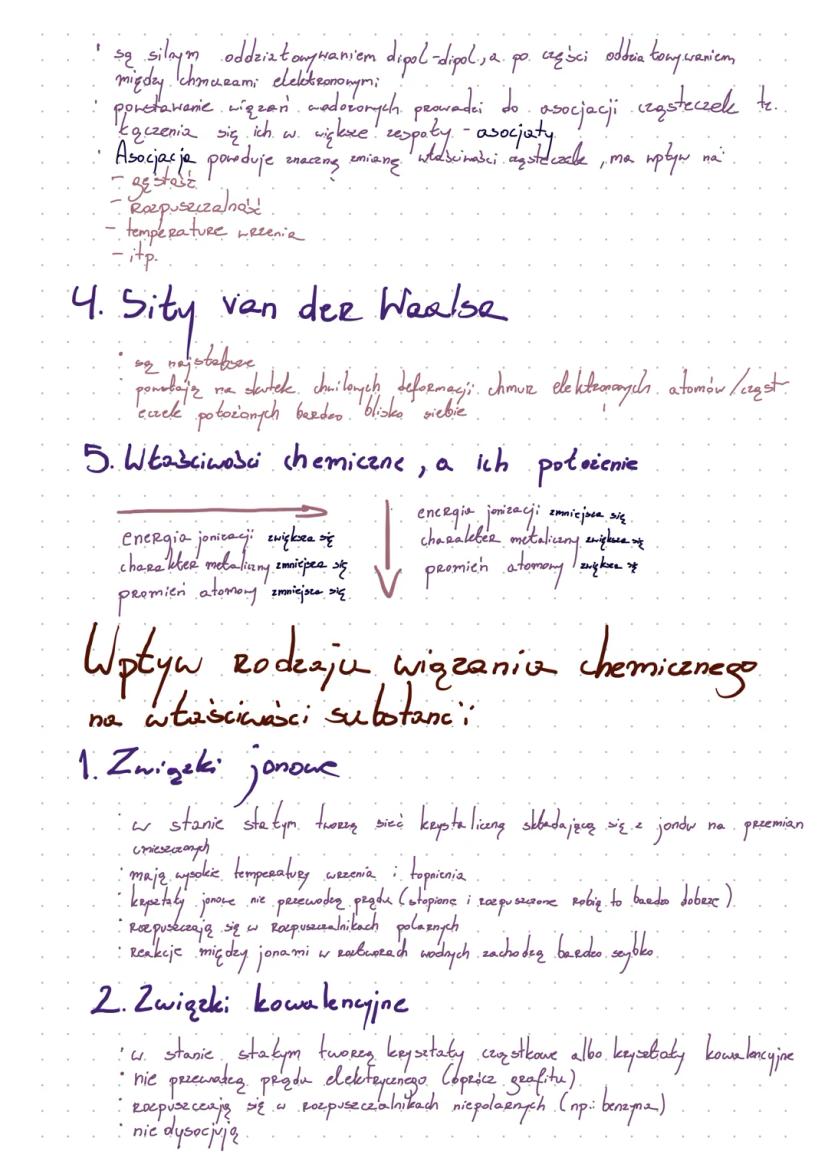 · są silnym oddziaływaniem dipol-dipol, a po części oddziaływaniem
między chmurami elektronowymi
· powstawanie wiązań wodorowych prowadzi do asocjacji cząsteczek tz.
łączenia się ich w większe zespoły - asocjaty
· Asocjacja powoduje znaczną zmianę właściwości cząsteczek, ma wpływ na:
- gęstość
- rozpuszczalność
- temperaturę wrzenia
- itp.
4. Siły van der Waalsa
· są najsłabsze
· powstają na skutek chwilowych deformacji chmur elektronowych atomów/cząst
eczek położonych bardzo blisko siebie
5. Właściwości chemiczne, a ich położenie
energia jonizacji zwiększa się
charakter metaliczny zmniejsza się
promień atomowy zmniejsza się
energia jonizacji zmniejsza się
charakter metaliczny zwiększa się
promień atomowy zwiększa się
Wpływ rodzaju wiązania chemicznego
na właściwości substancji
1. Związki jonowe
· w stanie stałym tworzą sieć krystaliczną składającą się z jonów na przemian
umieszczonych
· mają wysokie temperatury wrzenia i topnienia
· kryształy jonowe nie przewodzą prądu (stopione i rozpuszczone robią to bardzo dobrze)
· rozpuszczają się w rozpuszczalnikach polarnych
· reakcje między jonami w roztworach wodnych zachodzą bardzo szybko
2. Związki kowalencyjne
· w stanie stałym tworzą kryształy cząstkowe albo kryształy kowalencyjne
· nie przewodzą prądu elektrycznego (oprócz grafitu)
· rozpuszczają się w rozpuszczalnikach niepolarnych (np.: benzyna)
· nie dysocjują